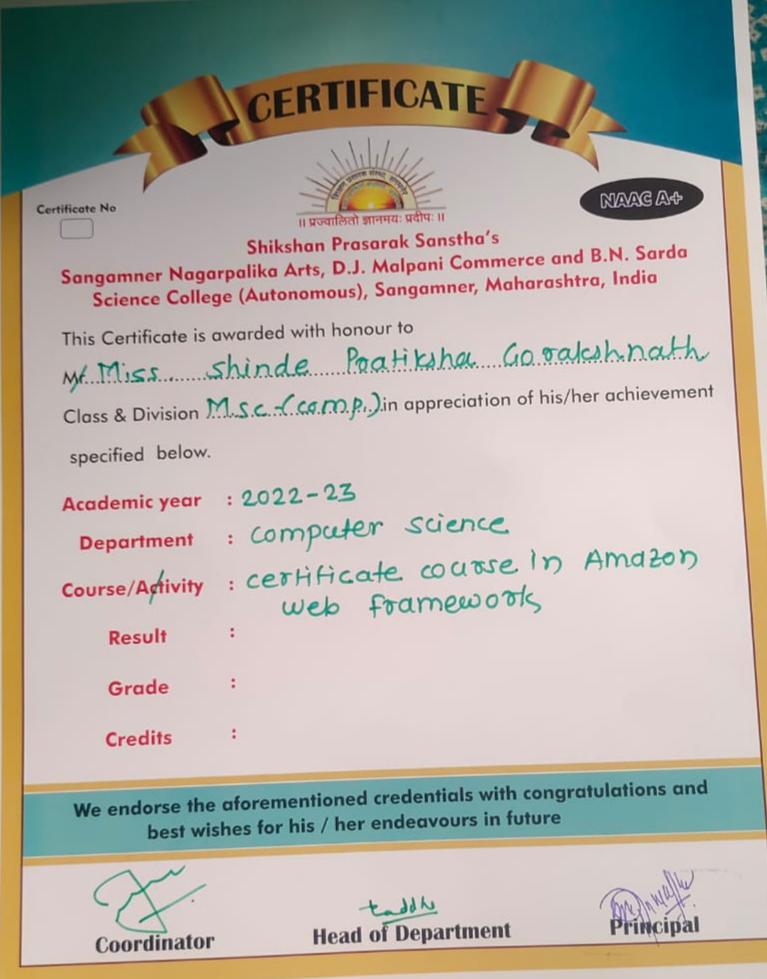 CERTIFICATE
Certificate No
NAAC A+
॥ प्रज्वालितो ज्ञानमयः प्रदीपः ॥
Shikshan Prasarak Sanstha's
Sangamner Nagarpalika Arts, D.J. Malpani Commerce and B.N. Sarda
Science College (Autonomous), Sangamner, Maharashtra, India
This Certificate is awarded with honour to
Mr. Miss. Shinde Pratiksha Gorakshnath
Class & Division M.sc.(comp.) in appreciation of his/her achievement
specified below.
Academic year : 2022-23
Department : computer science
Course/Activity : certificate course in Amazon
web frameworks
Result :
Grade :
Credits :
We endorse the aforementioned credentials with congratulations and
best wishes for his / her endeavours in future
Coordinator
Head of Department
Principal